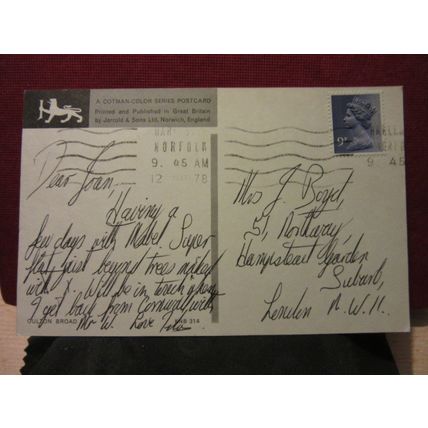 A COTMAN-COLOR SERIES POSTCARD
Printed and Published in Great Britain
by Jarrold & Sons Ltd, Norwich, England
NORFOLK
9. 45 AM
12 78
9. 45
9P
Dear Joan,
Having a
few days with Mabel. Super
flat just beyond trees marked
with X. Will be in touch when
I get back from Cornwall with
Mr W. Love
OULTON BROAD
KNB 314
Mrs J. Boyd,
51, Northway,
Hampstead Garden
Suburb,
London N.W.11.